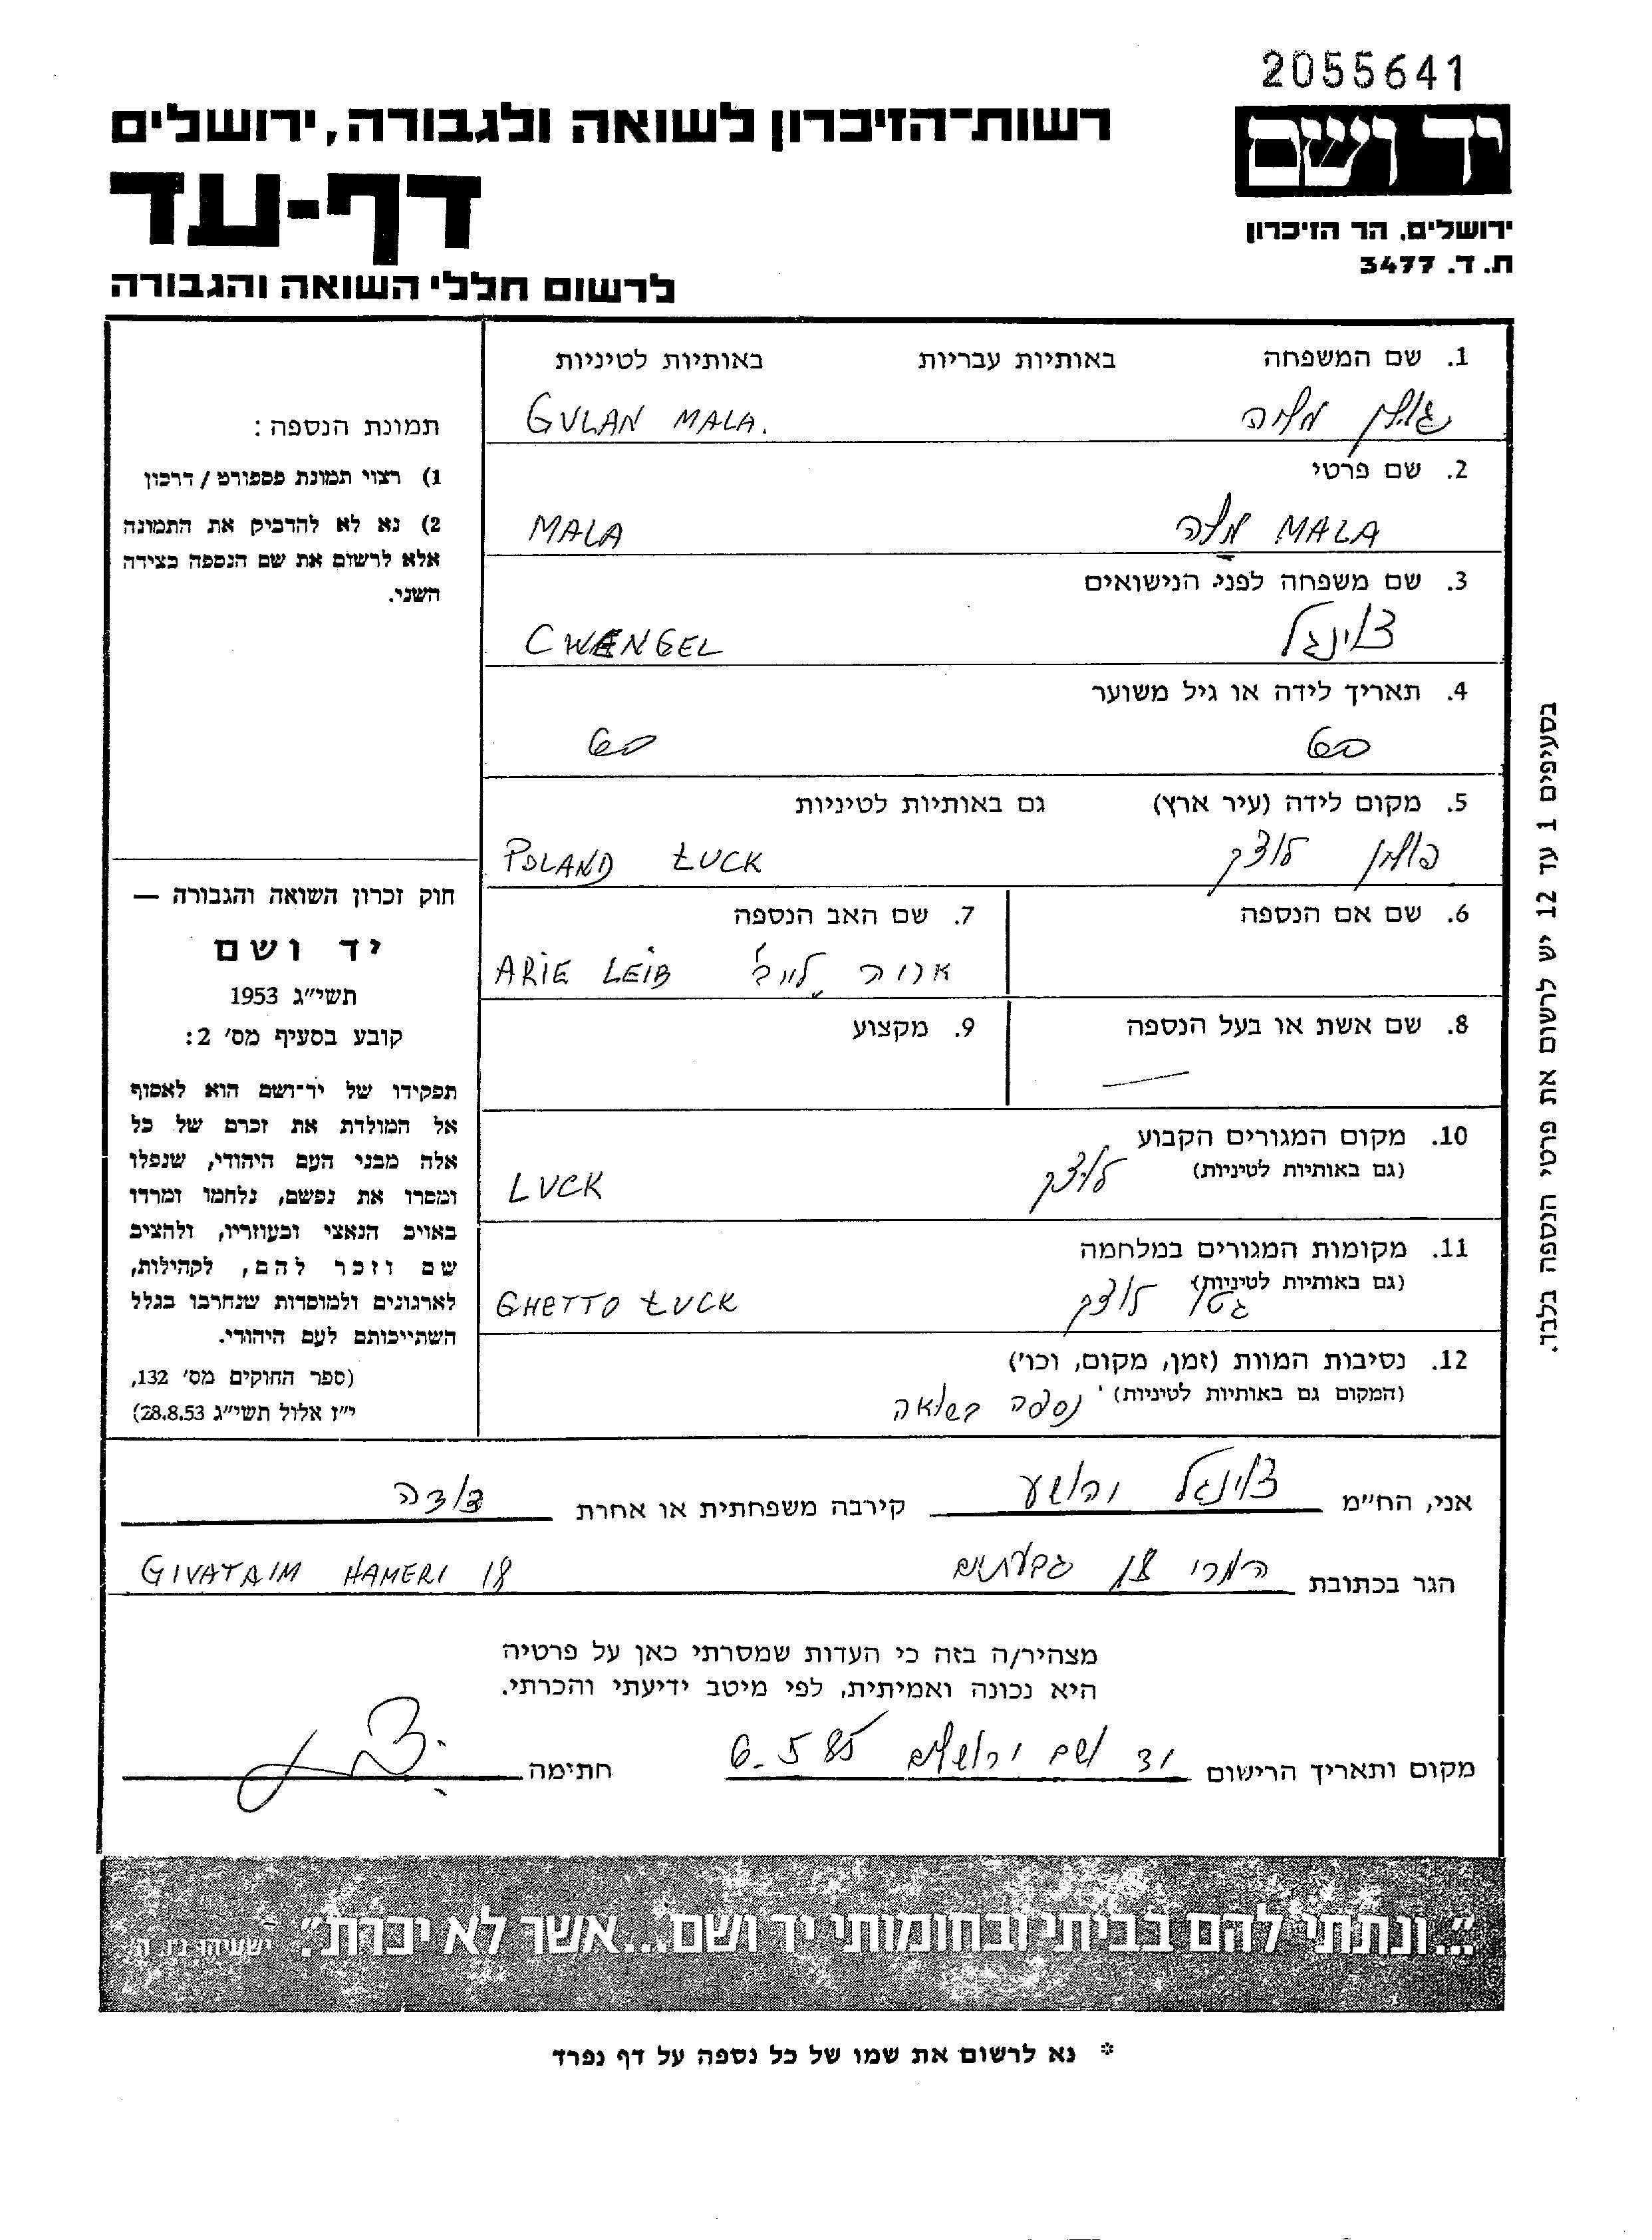 2055641
יד ושם
ירושלים, הר הזיכרון
ת. ד. 3477
רשות־הזיכרון לשואה ולגבורה, ירושלים
דף-עד
לרשום חללי השואה והגבורה
1. שם המשפחה באותיות עבריות באותיות לטיניות
גולן מלה GULAN MALA.
2. שם פרטי
MALA מלה MALA
3. שם משפחה לפני הנישואים
צוינגל CWENGEL
4. תאריך לידה או גיל משוער
60 60
5. מקום לידה (עיר ארץ) גם באותיות לטיניות
פולין לוצק POLAND ŁUCK
6. שם אם הנספה 7. שם האב הנספה
אריה לייב ARIE LEIB
8. שם אשת או בעל הנספה 9. מקצוע
—
10. מקום המגורים הקבוע
(גם באותיות לטיניות) לוצק LUCK
11. מקומות המגורים במלחמה
(גם באותיות לטיניות) גטו לוצק GHETTO ŁUCK
12. נסיבות המוות (זמן, מקום, וכו')
(המקום גם באותיות לטיניות) נספה בשואה
תמונת הנספה:
1) רצוי תמונת פספורט / דרכון
2) נא לא להדביק את התמונה
אלא לרשום את שם הנספה בצידה
השני.
חוק זכרון השואה והגבורה —
יד ושם
תשי״ג 1953
קובע בסעיף מס' 2:
תפקידו של יד־ושם הוא לאסוף
אל המולדת את זכרם של כל
אלה מבני העם היהודי, שנפלו
ומסרו את נפשם, נלחמו ומרדו
באויב הנאצי ובעוזריו, ולהציב
שם וזכר להם, לקהילות,
לארגונים ולמוסדות שנחרבו בגלל
השתייכותם לעם היהודי.
(ספר החוקים מס' 132,
י״ז אלול תשי״ג 28.8.53)
בסעיפים 1 עד 12 יש לרשום את פרטי הנספה בלבד.
אני, הח״מ צוינגל יהושע קירבה משפחתית או אחרת דודה
הגר בכתובת המרי 18 גבעתים GIVATAIM HAMERI 18
מצהיר/ה בזה כי העדות שמסרתי כאן על פרטיה
היא נכונה ואמיתית, לפי מיטב ידיעתי והכרתי.
מקום ותאריך הרישום יד ושם ירושלים 6.5.85 חתימה
״...ונתתי להם בביתי ובחומותי יד ושם...אשר לא יכרת״. ישעיהו נו, ה'
* נא לרשום את שמו של כל נספה על דף נפרד